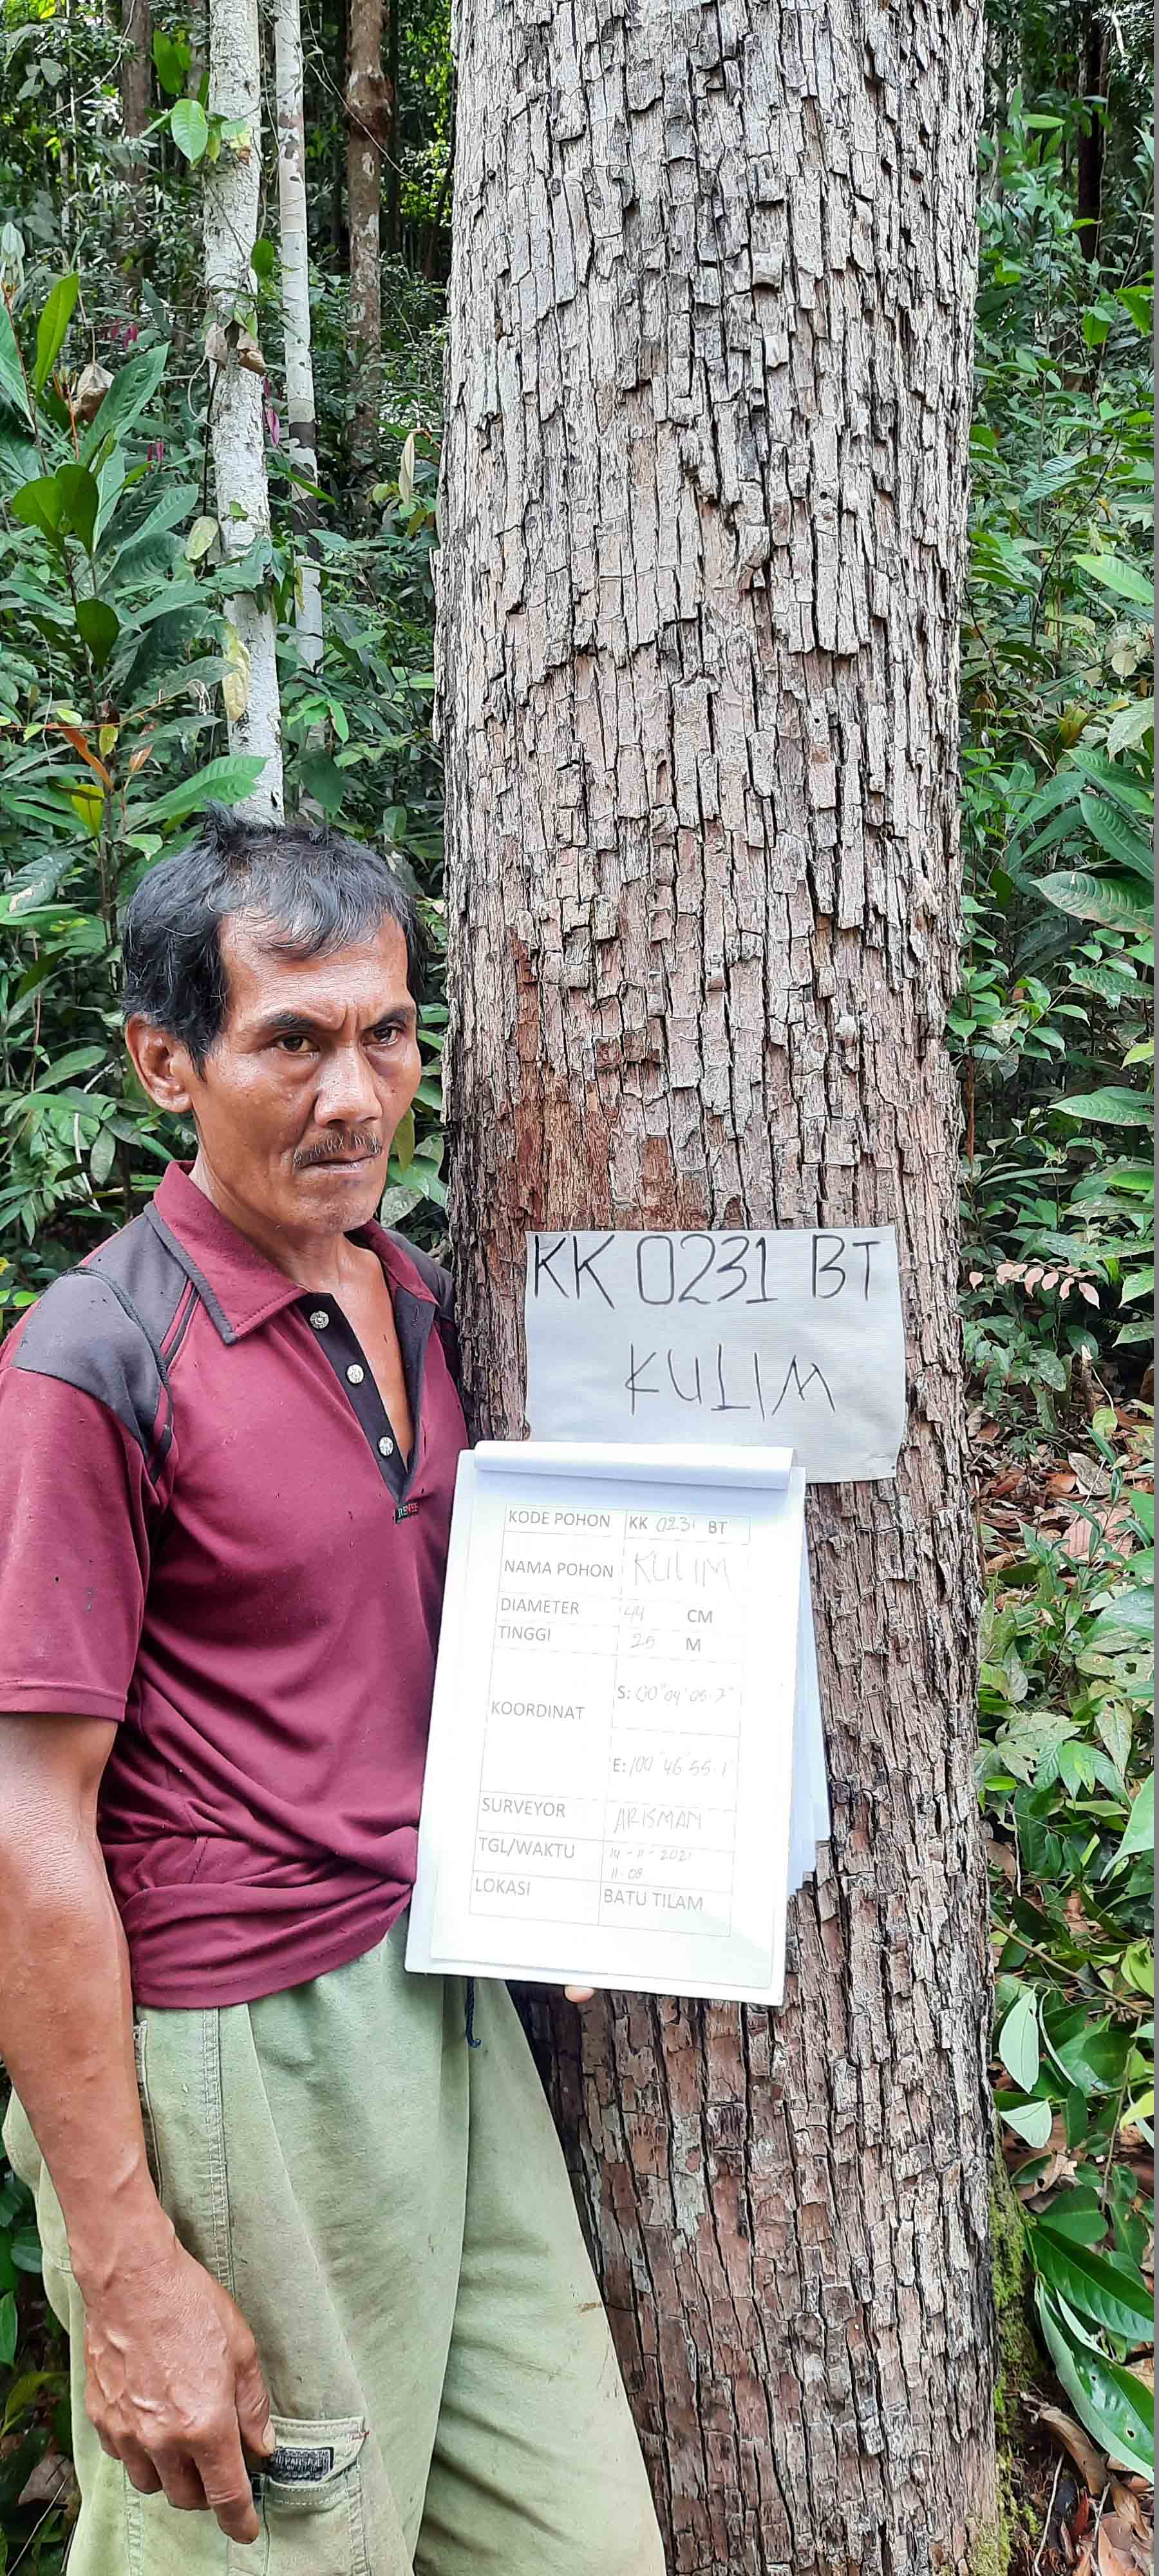 KK 0231 BT
KULIM
KODE POHON KK 0231 BT
NAMA POHON KULIM
DIAMETER 44 CM
TINGGI 25 M
KOORDINAT
S: 00°04'05.7"
E: 100°46'55.1
SURVEYOR ARISMAN
TGL/WAKTU 14-11-2021
11-08
LOKASI BATU TILAM